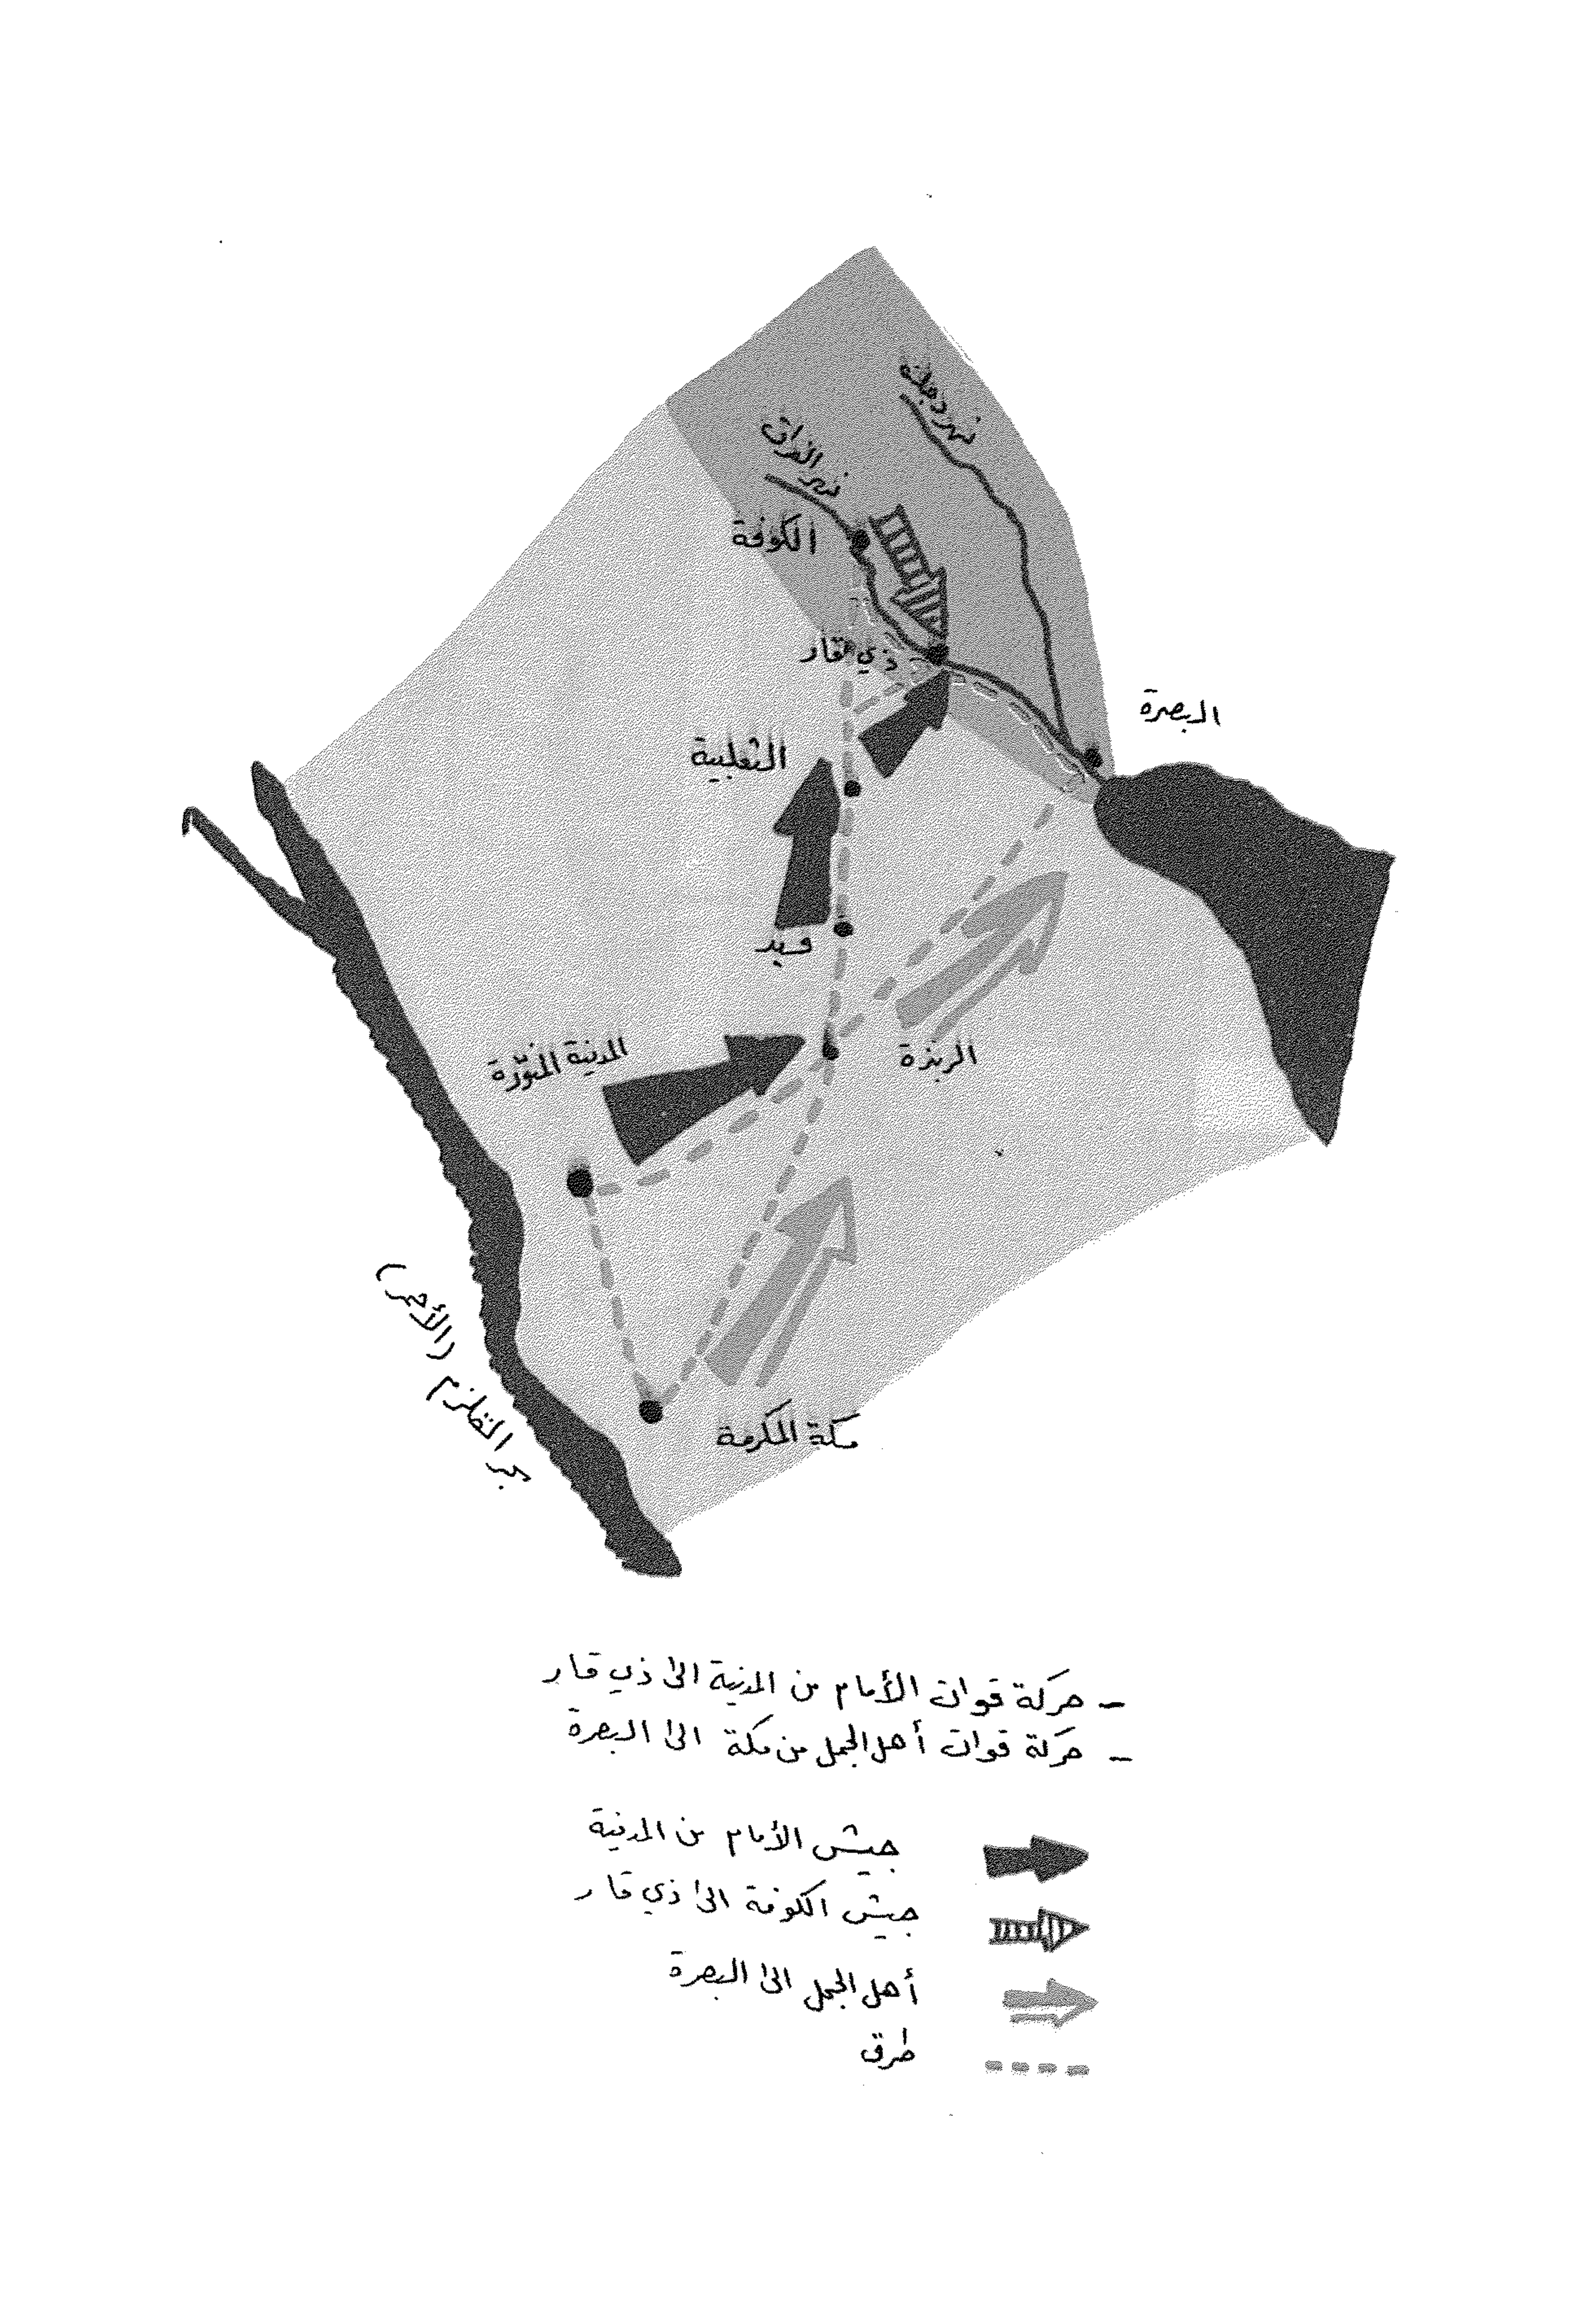 نهر دجلة
نهر الفرات
الكوفة
ذي قار
البصرة
الثعلبية
فيد
المدينة المنورة
الربذة
بحر القلزم (الأحمر)
مكة المكرمة
- حركة قوات الأمام من المدينة الى ذي قار
- حركة قوات أهل الجمل من مكة الى البصرة
جيش الأمام من المدينة
جيش الكوفة الى ذي قار
أهل الجمل الى البصرة
طرق